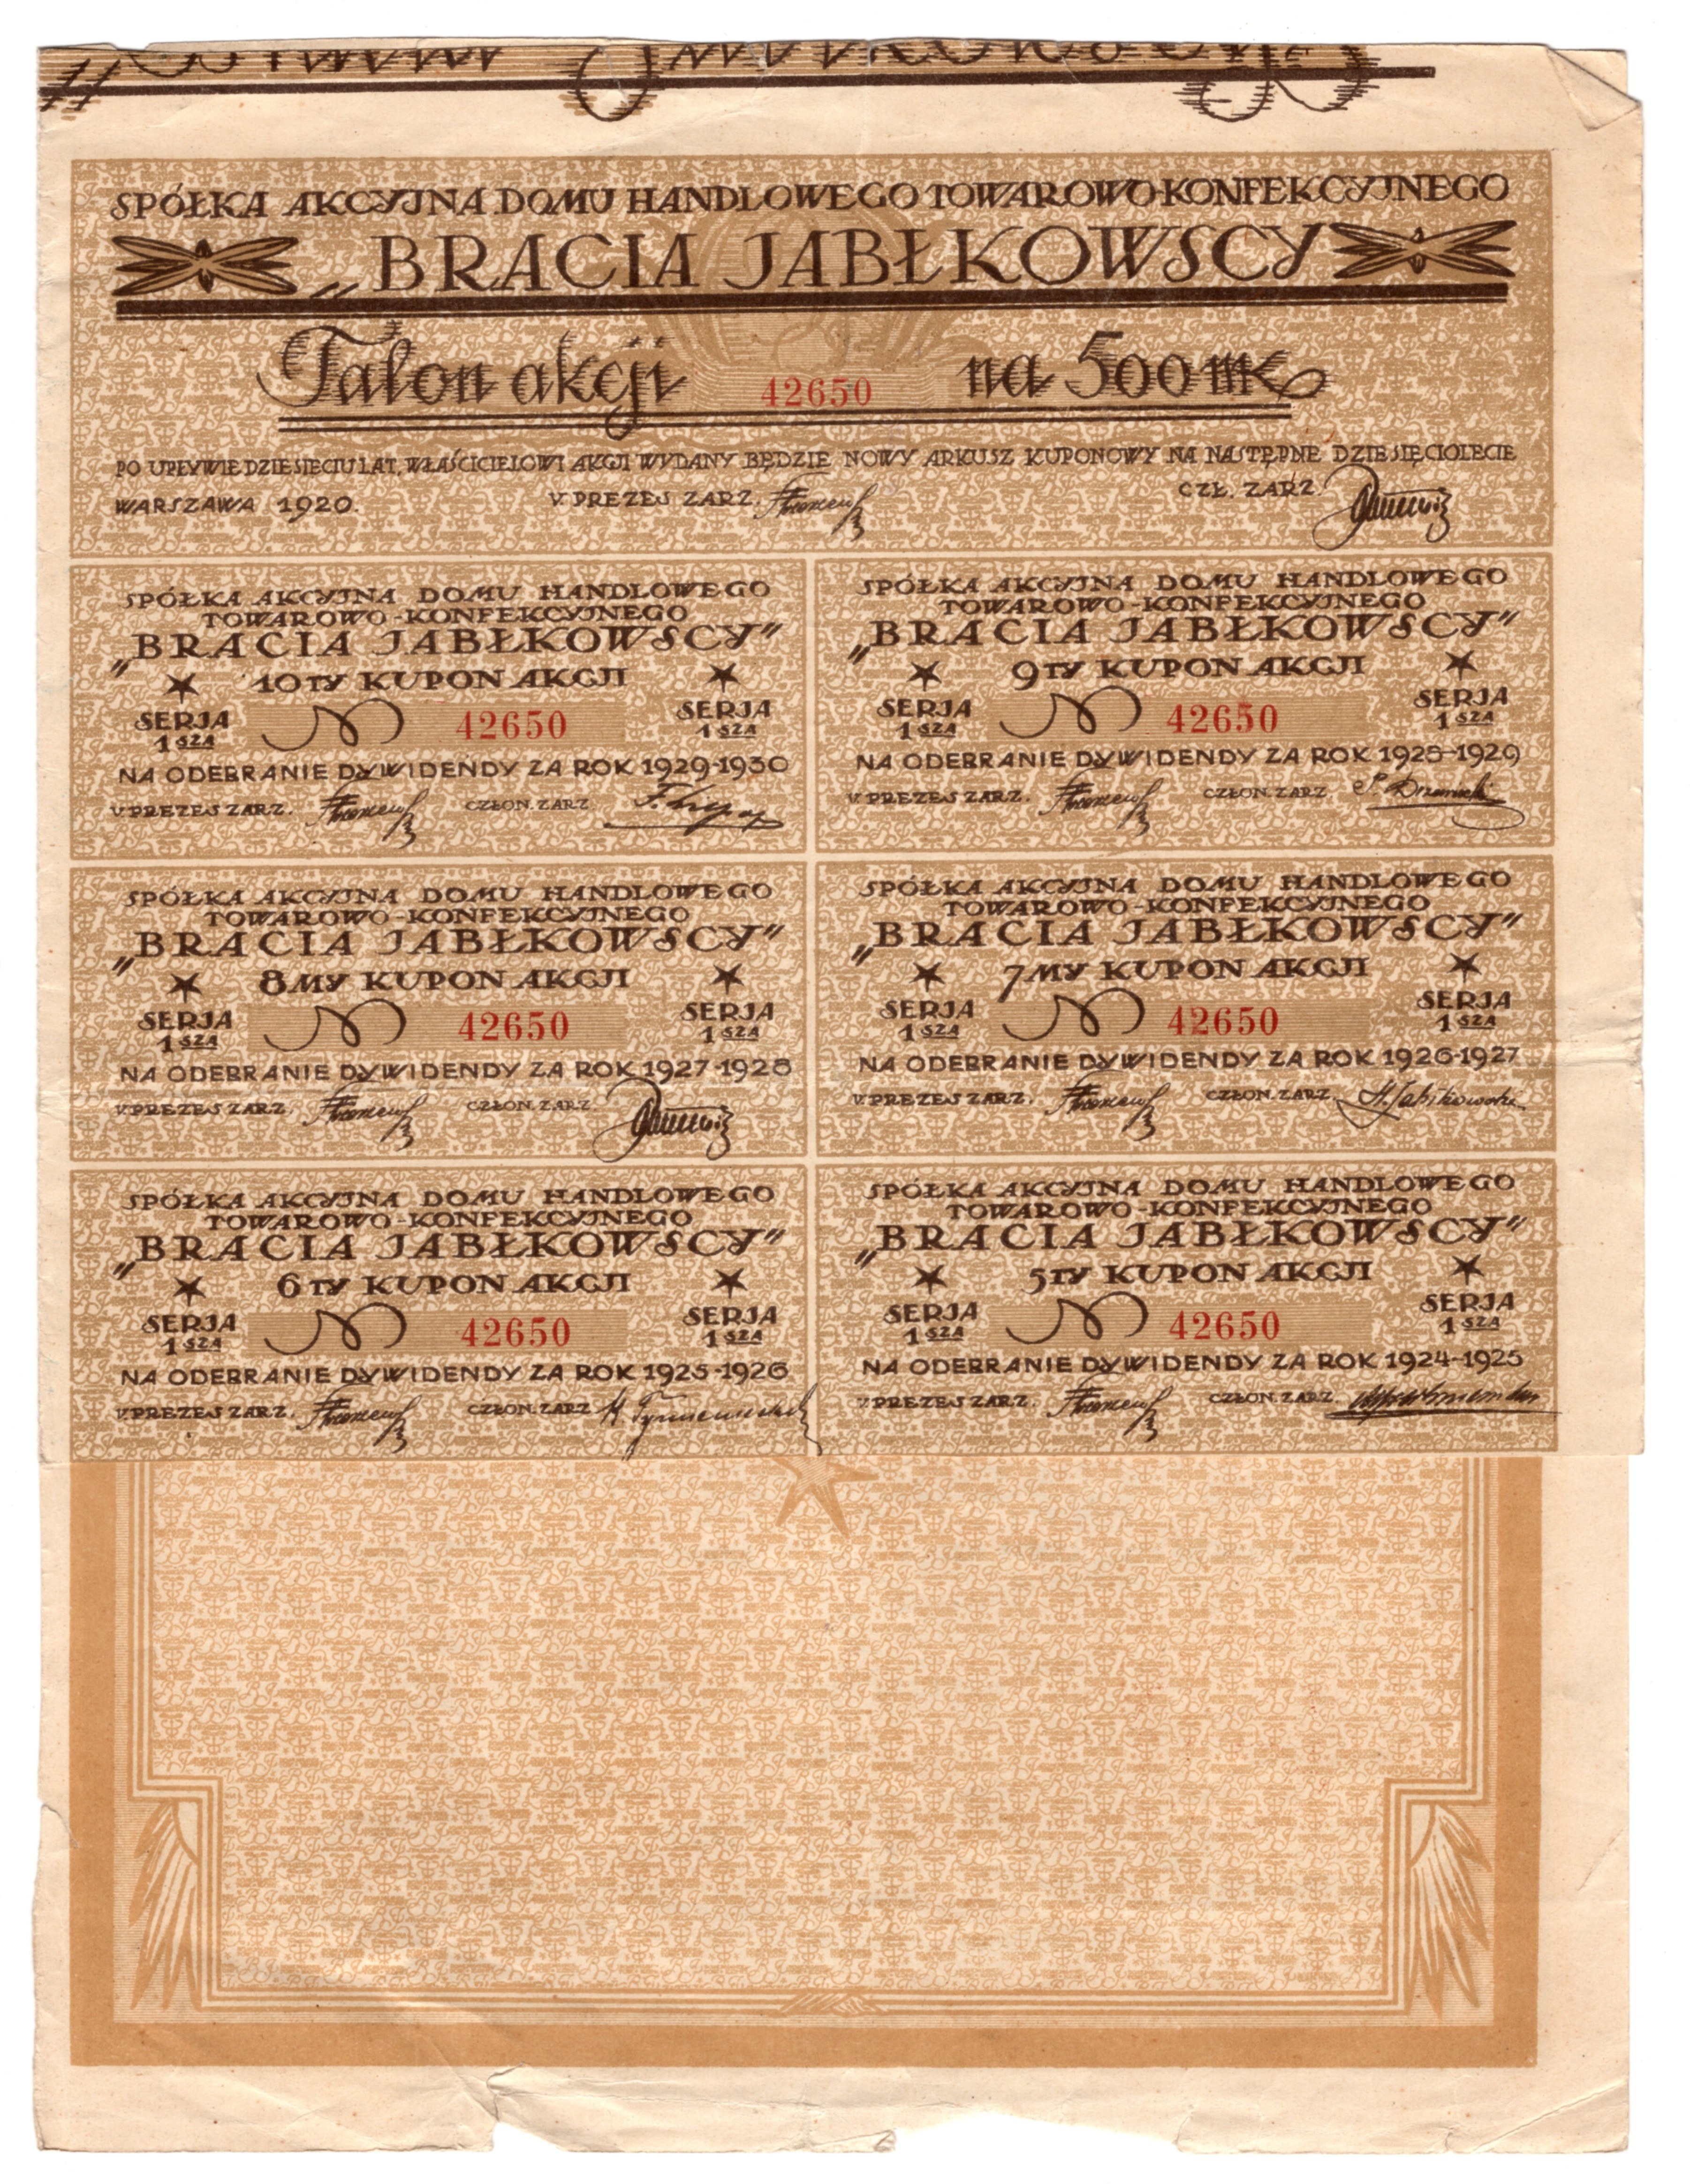 SPÓŁKA AKCYJNA DOMU HANDLOWEGO TOWAROWO-KONFEKCYJNEGO
„BRACIA JABŁKOWSCY
Talon akcji 42650 na 500 mk
PO UPŁYWIE DZIESIĘCIU LAT, WŁAŚCICIELOWI AKCJI WYDANY BĘDZIE NOWY ARKUSZ KUPONOWY NA NASTĘPNE DZIESIĘCIOLECIE
WARSZAWA 1920. V. PREZES ZARZ. CZŁ. ZARZ.
SPÓŁKA AKCYJNA DOMU HANDLOWEGO
TOWAROWO-KONFEKCYJNEGO
„BRACIA JABŁKOWSCY"
10TY KUPON AKCJI
SERJA 1SZA N 42650 SERJA 1SZA
NA ODEBRANIE DYWIDENDY ZA ROK 1929-1930
V. PREZES ZARZ. CZŁON. ZARZ.
SPÓŁKA AKCYJNA DOMU HANDLOWEGO
TOWAROWO-KONFEKCYJNEGO
„BRACIA JABŁKOWSCY"
9TY KUPON AKCJI
SERJA 1SZA N 42650 SERJA 1SZA
NA ODEBRANIE DYWIDENDY ZA ROK 1928-1929
V. PREZES ZARZ. CZŁON. ZARZ.
SPÓŁKA AKCYJNA DOMU HANDLOWEGO
TOWAROWO-KONFEKCYJNEGO
„BRACIA JABŁKOWSCY"
8MY KUPON AKCJI
SERJA 1SZA N 42650 SERJA 1SZA
NA ODEBRANIE DYWIDENDY ZA ROK 1927-1928
V. PREZES ZARZ. CZŁON. ZARZ.
SPÓŁKA AKCYJNA DOMU HANDLOWEGO
TOWAROWO-KONFEKCYJNEGO
„BRACIA JABŁKOWSCY"
7MY KUPON AKCJI
SERJA 1SZA N 42650 SERJA 1SZA
NA ODEBRANIE DYWIDENDY ZA ROK 1926-1927
V. PREZES ZARZ. CZŁON. ZARZ. H. Jabłkowski
SPÓŁKA AKCYJNA DOMU HANDLOWEGO
TOWAROWO-KONFEKCYJNEGO
„BRACIA JABŁKOWSCY"
6TY KUPON AKCJI
SERJA 1SZA N 42650 SERJA 1SZA
NA ODEBRANIE DYWIDENDY ZA ROK 1925-1926
V. PREZES ZARZ. CZŁON. ZARZ.
SPÓŁKA AKCYJNA DOMU HANDLOWEGO
TOWAROWO-KONFEKCYJNEGO
„BRACIA JABŁKOWSCY"
5TY KUPON AKCJI
SERJA 1SZA N 42650 SERJA 1SZA
NA ODEBRANIE DYWIDENDY ZA ROK 1924-1925
V. PREZES ZARZ. CZŁON. ZARZ.